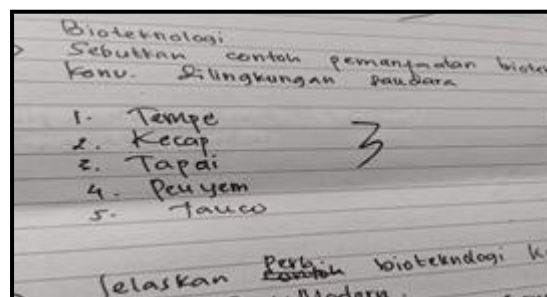 Bioteknologi
Sebutkan contoh pemanfaatan biotek
Konv. dilingkungan saudara
1. Tempe
2. Kecap
3. Tapai
4. Peuyem
5. Tauco
3
Jelaskan Perb. contoh bioteknologi K
Modern